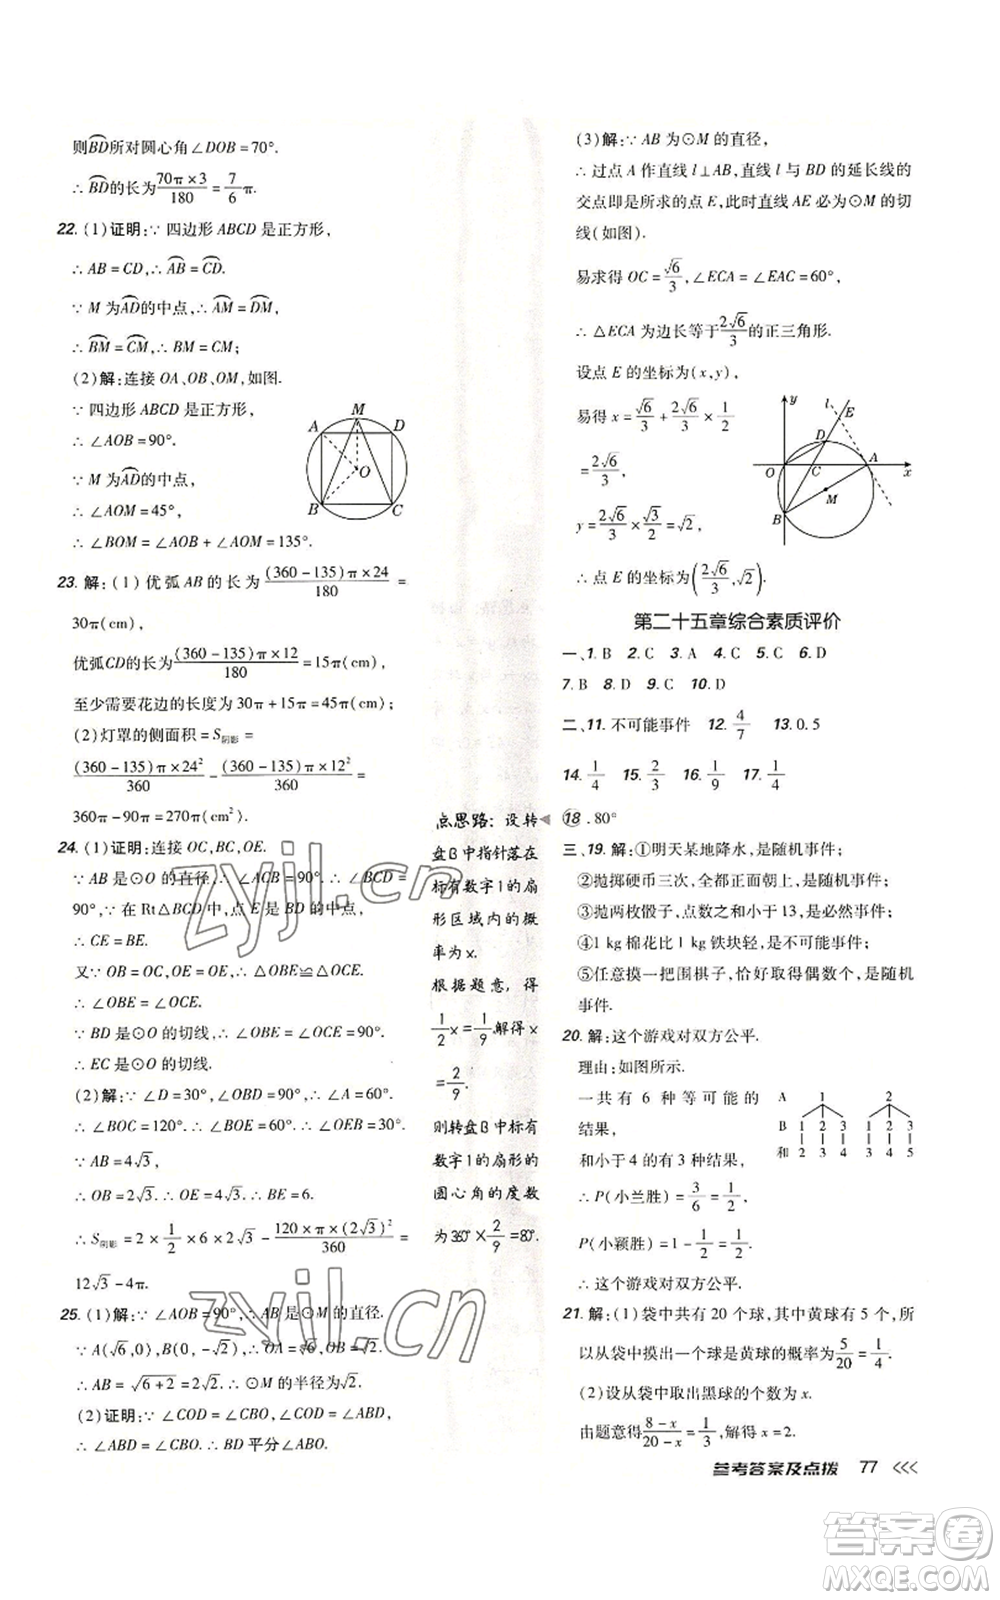 则$\overset{\frown}{BD}$所对圆心角∠DOB=70°.
∴$\overset{\frown}{BD}$的长为$\frac{70π×3}{180}=\frac{7}{6}π$.
22. (1)证明:∵四边形ABCD是正方形,
∴AB=CD,∴$\overset{\frown}{AB}=\overset{\frown}{CD}$.
∵M为$\overset{\frown}{AD}$的中点,∴$\overset{\frown}{AM}=\overset{\frown}{DM}$,
∴$\overset{\frown}{BM}=\overset{\frown}{CM}$,∴BM=CM;
(2)解:连接OA、OB、OM,如图.
∵四边形ABCD是正方形,
∴∠AOB=90°.
∵M为$\overset{\frown}{AD}$的中点,
∴∠AOM=45°,
∴∠BOM=∠AOB+∠AOM=135°.
M
A
D
O
B
C
23. 解:(1)优弧AB的长为$\frac{(360-135)π×24}{180}$=
30π(cm),
优弧CD的长为$\frac{(360-135)π×12}{180}$=15π(cm),
至少需要花边的长度为30π+15π=45π(cm);
(2)灯罩的侧面积=S阴影=
$\frac{(360-135)π×24^2}{360}-\frac{(360-135)π×12^2}{360}$=
360π-90π=270π(cm²).
24. (1)证明:连接OC,BC,OE.
∵AB是⊙O的直径,∴∠ACB=90°.∴∠BCD=
90°,∵在Rt△BCD中,点E是BD的中点,
∴CE=BE.
又∵OB=OC,OE=OE,∴△OBE≌△OCE.
∴∠OBE=∠OCE.
∵BD是⊙O的切线,∴∠OBE=∠OCE=90°.
∴EC是⊙O的切线.
(2)解:∵∠D=30°,∠OBD=90°,∴∠A=60°.
∴∠BOC=120°.∴∠BOE=60°.∴∠OEB=30°.
∵AB=4√3,
∴OB=2√3,∴BE=6.
∴S阴影=2×$\frac{1}{2}$×6×2√3-$\frac{120×π×(2\sqrt{3})^2}{360}$=
12√3-4π.
25. (1)解:∵∠AOB=90°,∴AB是⊙M的直径.
∵A(√6,0),B(0,-√2),∴OA=√6,OB=√2.
∴AB=$\sqrt{6+2}$=2√2.∴⊙M的半径为√2.
(2)证明:∵∠COD=∠CBO,∠COD=∠ABD,
∴∠ABD=∠CBO.∴BD平分∠ABO.
点思路:设转
盘B中指针落在
标有数字1的扇
形区域内的概
率为x.
根据题意,得
$\frac{1}{2}x=\frac{1}{9}$.解得x
=$\frac{2}{9}$.
则转盘B中标有
数字1的扇形的
圆心角的度数
为360°×$\frac{2}{9}$=80°.
(3)解:∵AB为⊙M的直径,
∴过点A作直线l⊥AB,直线l与BD的延长线的
交点即是所求的点E,此时直线AE必为⊙M的切
线(如图).
易求得OC=$\frac{\sqrt{6}}{3}$,∠ECA=∠EAC=60°,
∴△ECA为边长等于$\frac{2\sqrt{6}}{3}$的正三角形.
设点E的坐标为(x,y),
易得x=$\frac{\sqrt{6}}{3}+\frac{2\sqrt{6}}{3}×\frac{1}{2}$
=$\frac{2\sqrt{6}}{3}$,
y=$\frac{2\sqrt{6}}{3}×\frac{\sqrt{3}}{2}$=√2,
∴点E的坐标为$\left(\frac{2\sqrt{6}}{3},\sqrt{2}\right)$.
y
l
E
D
O
C
A
x
M
B
第二十五章综合素质评价
一、1. B 2. C 3. A 4. C 5. C 6. D
7. B 8. D 9. C 10. D
二、11. 不可能事件 12. $\frac{4}{7}$ 13. 0.5
14. $\frac{1}{4}$ 15. $\frac{2}{3}$ 16. $\frac{1}{9}$ 17. $\frac{1}{4}$
18. 80°
三、19. 解:①明天某地降水,是随机事件;
②抛掷硬币三次,全都正面朝上,是随机事件;
③抛两枚骰子,点数之和小于13,是必然事件;
④1 kg棉花比1 kg铁块轻,是不可能事件;
⑤任意摸一把围棋子,恰好取得偶数个,是随机
事件.
20. 解:这个游戏对双方公平.
理由:如图所示.
一共有6种等可能的
结果,
和小于4的有3种结果,
A 1 2
B 1 2 3 1 2 3
和 2 3 4 3 4 5
∴P(小兰胜)=$\frac{3}{6}=\frac{1}{2}$,
P(小颖胜)=1-$\frac{1}{2}=\frac{1}{2}$.
∴这个游戏对双方公平.
21. 解:(1)袋中共有20个球,其中黄球有5个,所
以从袋中摸出一个球是黄球的概率为$\frac{5}{20}=\frac{1}{4}$.
(2)设从袋中取出黑球的个数为x.
由题意得$\frac{8-x}{20-x}=\frac{1}{3}$,解得x=2.
参考答案及点拨 77 <<<
zyjl.cn
zyjl.cn
答案卷
MXQE.COM